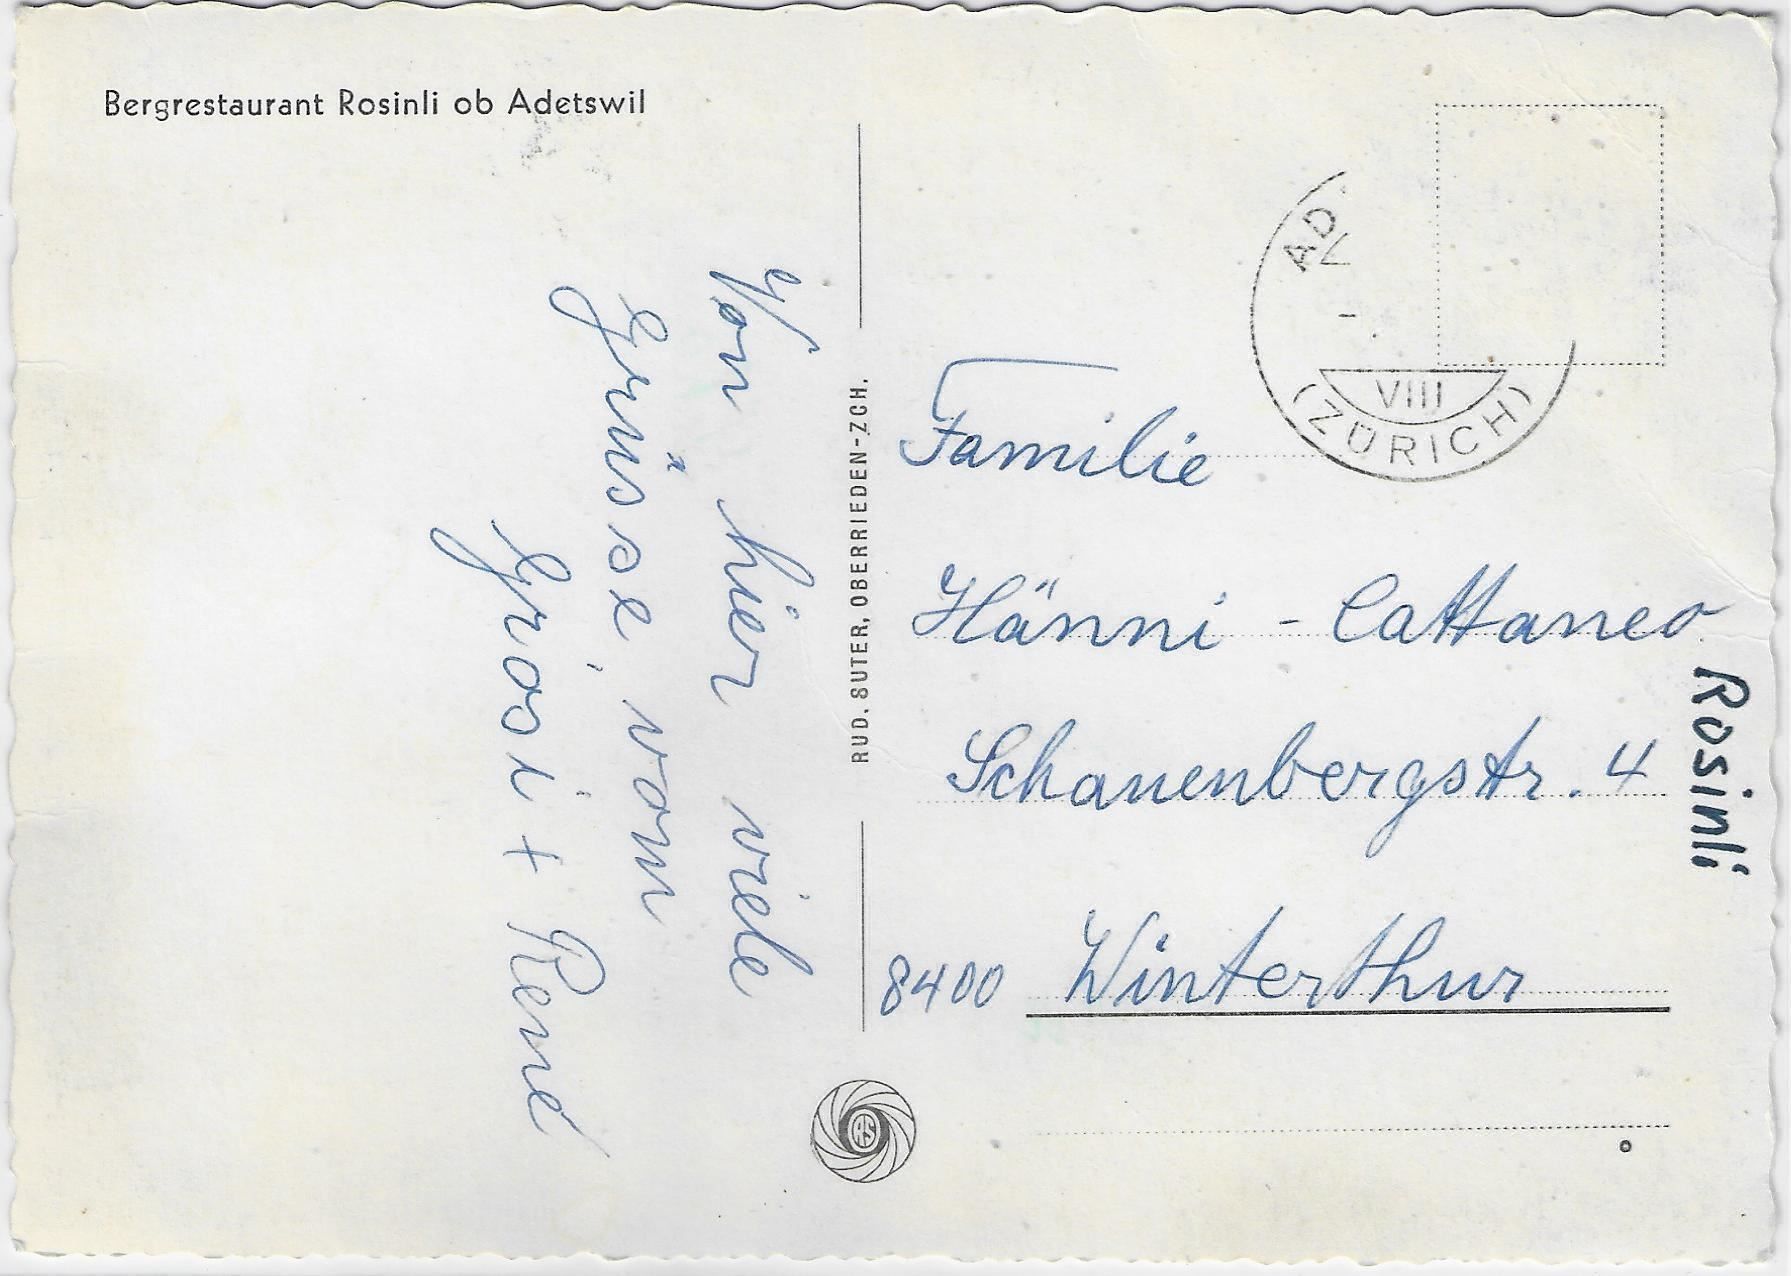 Bergrestaurant Rosinli ob Adetswil
Von hier viele
Grüsse, vom
Grosi + René
RUD. SUTER, OBERRIEDEN-ZCH.
AD
VIII
(ZÜRICH)
Familie
Hänni - Cattaneo
Schauenbergstr. 4
8400 Winterthur
Rosinli
RS